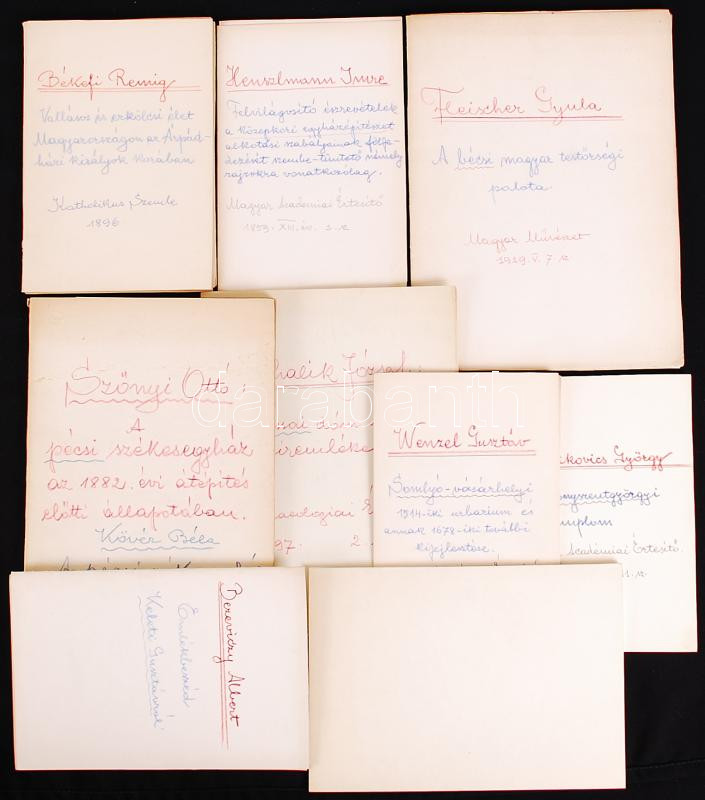 Békefi Remig
Vallásos és erkölcsi élet
Magyarországon az Árpád-
házi királyok korában
Katholikus Szemle
1896
Henszlmann Imre
Felvilágosító észrevételek
a középkori egyházépítészet
alkotási szabályainak fölfe-
dezését szembe-tüntető némely
rajzokra vonatkozólag.
Magyar Academiai Értesítő
1859. XIX. év. 2. sz.
Fleischer Gyula
A bécsi magyar testőrségi
palota
Magyar Művészet
1929. V. 7 sz.
Szőnyi Ottó:
A
pécsi székesegyház
az 1882. évi átépítés
előtti állapotában.
Kövér Béla
halik József:
ai dóm
iremléke
aeologiai É
97. 2.
Wenzel Gusztáv
Somlyó-vásárhelyi
1914-iki urbarium és
annak 1678-iki további
kifejlesztése.
ikovics György
onyszentgyörgyi
mplom
Academiai Értesítő.
1. sz.
Berzeviczy Albert
Emlékbeszéd
Keleti Gusztávról
darabanth